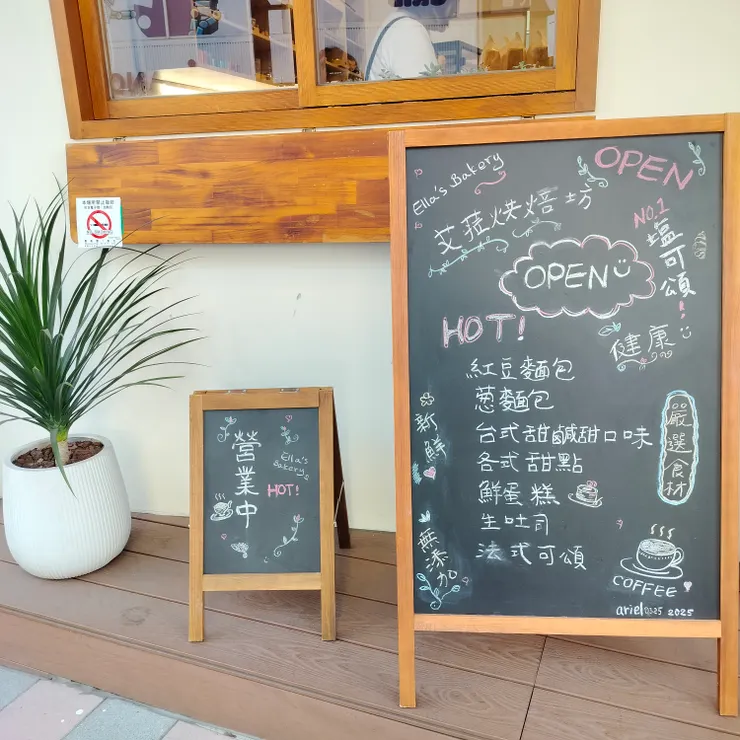 本場所禁止吸菸
Ella's Bakery
OPEN
艾菈烘焙坊
NO.1
塩可頌!
OPEN
HOT!
健康
紅豆麵包
蔥麵包
台式甜鹹甜口味
各式甜點
鮮蛋糕
生吐司
法式可頌
新鮮
無添加
嚴選食材
COFFEE
ariel0325 2025
營業中
Ella's
Bakery
HOT!